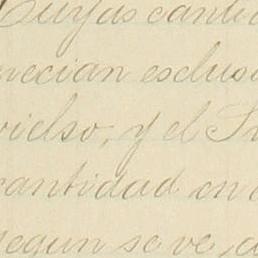 Cuyas canti
necian esclusi
y el
cantidad en
segun se ve,